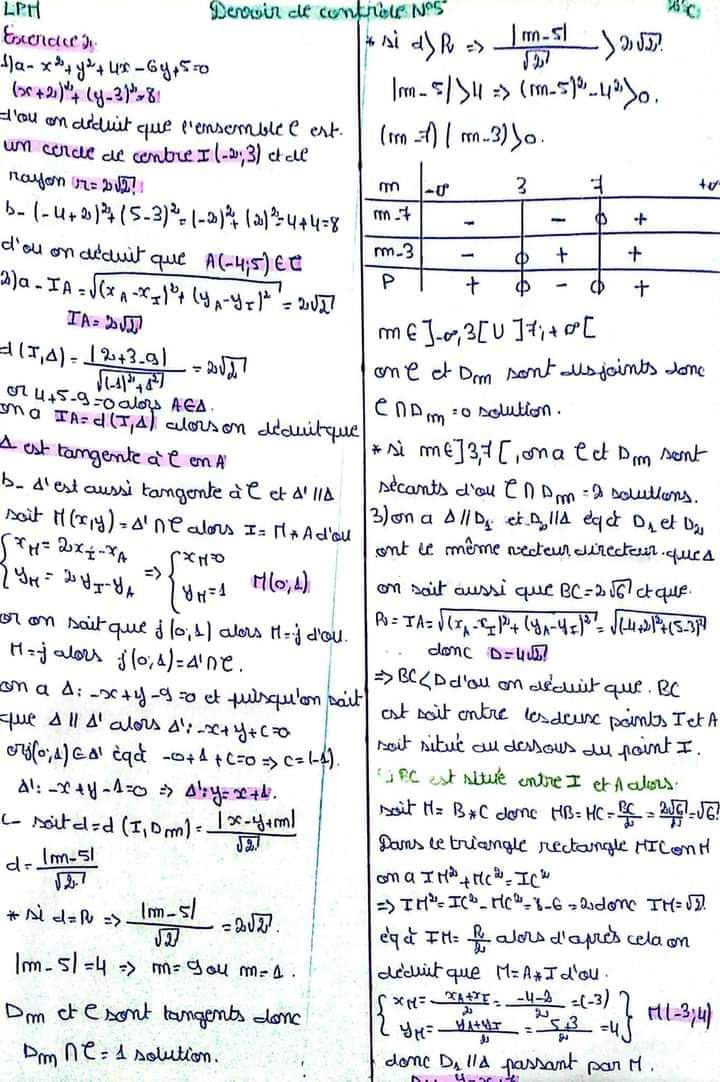 LPM Devoir de contrôle N°5
Exercice 2:
1) a- x²+y²+4x-6y+5=0
(x+2)²+(y-3)²=8
d'où on déduit que l'ensemble C est
un cercle de centre I(-2;3) et de
rayon r=2√2
b- (-4+2)²+(5-3)²=(-2)²+(2)²=4+4=8
d'où on déduit que A(-4;5)∈C
2) a- IA=√((x_A-x_I)²+(y_A-y_I)²)=2√2
IA=2√2
d(I,Δ)=|2+3-9|/√((-1)²+1²)=2√2
or 4+5-9=0 alors A∈Δ.
on a IA=d(I,Δ) alors on déduit que
Δ est tangente à C en A
b- Δ' est aussi tangente à C et Δ'//Δ
soit M(x,y)=Δ'∩C alors I=M*A d'où
{x_M=2x_I-x_A => {x_M=0
{y_M=2y_I-y_A => {y_M=1 M(0,1)
or on sait que j(0,1) alors M=j d'où.
M=j alors j(0,1)=Δ'∩C.
on a Δ: -x+y-9=0 et puisqu'on sait
que Δ//Δ' alors Δ': -x+y+c=0
or j(0,1)∈Δ' éqà -0+1+c=0 => c=(-1).
Δ': -x+y-1=0 => Δ': y=x+1.
c- soit d=d(I,Dm)=|x-y+m|/√2
d=|m-5|/√2
* si d=R => |m-5|/√2=2√2
|m-5|=4 => m=9 ou m=1.
Dm et C sont tangents donc
Dm∩C=1 solution.
* si d>R => |m-5|/√2>2√2
|m-5|>4 => (m-5)²-4²>0.
(m-7)(m-3)>0.
m -∞ 3 7 +∞
m-7 - - 0 +
m-3 - 0 + +
P + 0 - 0 +
m∈]-∞,3[∪]7;+∞[
on C et Dm sont disjoints donc
C∩Dm=0 solution.
* si m∈]3,7[, on a C et Dm sont
sécants d'où C∩Dm=2 solutions.
3) on a Δ//D₁ et D₂//Δ éqà D₁ et D₂
ont le même vecteur directeur que Δ
on sait aussi que BC=2√6 et que
R=IA=√((x_A-x_I)²+(y_A-y_I)²)=√((-4+2)²+(5-3)²)
donc D=4√2
=> BC<D d'où on déduit que BC
est soit entre les deux points I et A
soit situé au dessous du point I.
BC est situé entre I et A alors.
soit M=B*C donc MB=MC=BC/2=2√6/2=√6
Dans le triangle rectangle MIC en M
on a IM²+MC²=IC²
=> IM²=IC²-MC²=8-6=2 donc IM=√2
éqà IM=R/2 alors d'après cela on
déduit que M=A*I d'où.
{x_M=(x_A+x_I)/2=(-4-2)/2=(-3)
{y_M=(y_A+y_I)/2=(5+3)/2=4} M(-3;4)
donc D₁//Δ passant par M.